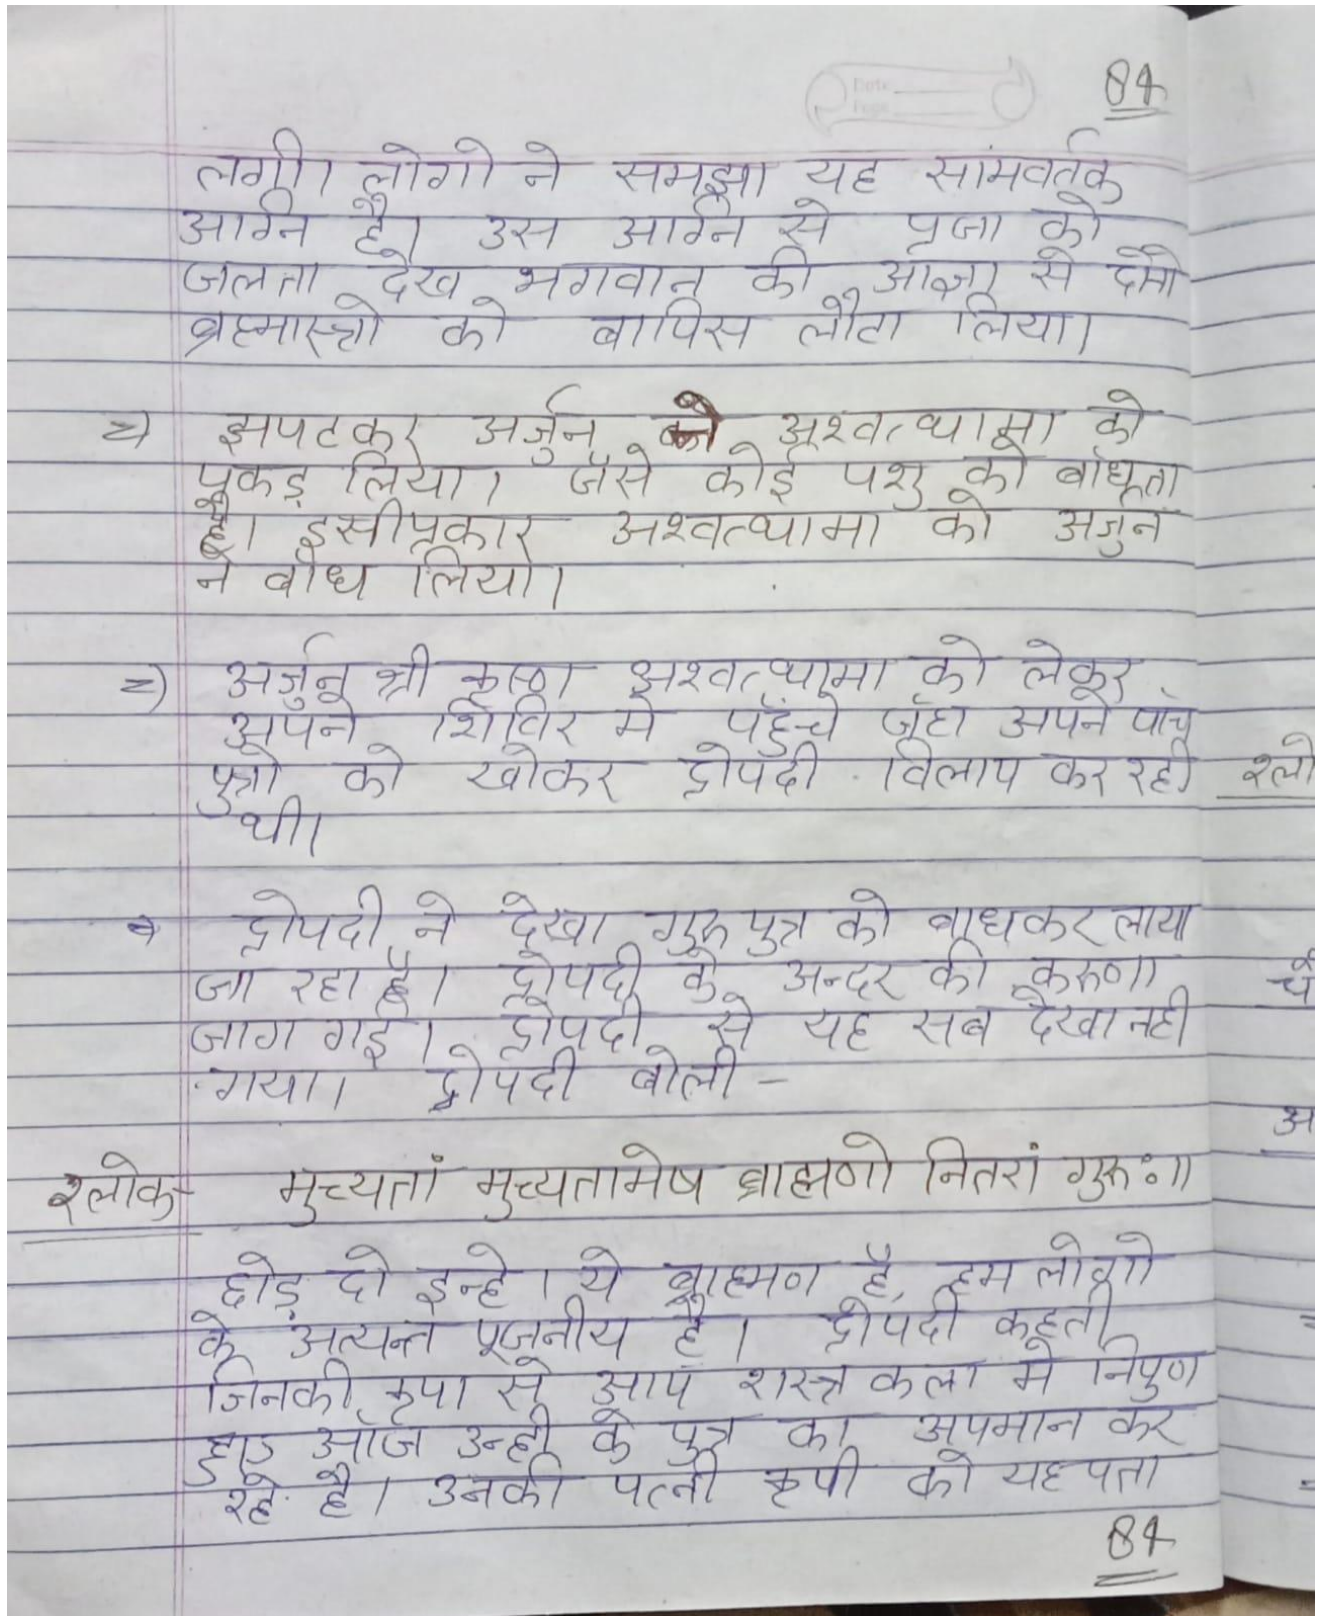 84
Date
Page
लगी। लोगो ने समझा यह सांमवर्तक
अग्नि है। उस अग्नि से प्रजा को
जलता देख भगवान की आज्ञा से दोनो
ब्रह्मास्त्रो को बापिस लौटा लिया।
=) झपटकर अर्जुन ने अश्वत्थामा को
पकड़ लिया। जैसे कोई पशु को बांधता
है। इसीप्रकार अश्वत्थामा को अर्जुन
ने बांध लिया।
=) अर्जुन श्री कृष्ण अश्वत्थामा को लेकर
अपने शिविर मे पहुँचे जँहा अपने पाँच
पुत्रो को खोकर द्रोपदी विलाप कर रही
थी।
द्रोपदी ने देखा गुरु पुत्र को बाधकर लाया
जा रहा है। द्रोपदी के अन्दर की करुणा
जाग गई। द्रोपदी से यह सब देखा नही
गया। द्रोपदी बोली -
श्लोक- मुच्यतां मुच्यतामेष ब्राह्मणो नितरां गुरुः॥
छोड़ दो इन्हे। ये ब्राह्मण है, हम लोगो
के अत्यन्त पूजनीय है। द्रोपदी कहती
जिनकी कृपा से आप शस्त्र कला मे निपुण
हुए आज उन्ही के पुत्र का अपमान कर
रहे है। उनकी पत्नी कृपी को यह पता
84
श्लो
अ